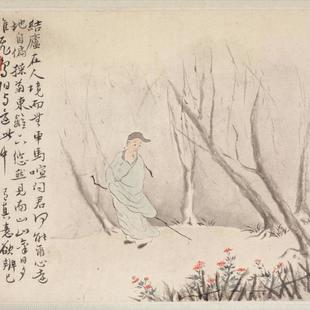 結廬在人境而無車馬喧問君何能爾心遠
地自偏採菊東籬下悠然見南山山氣日夕
佳飛鳥相與還此中有真意欲辨已